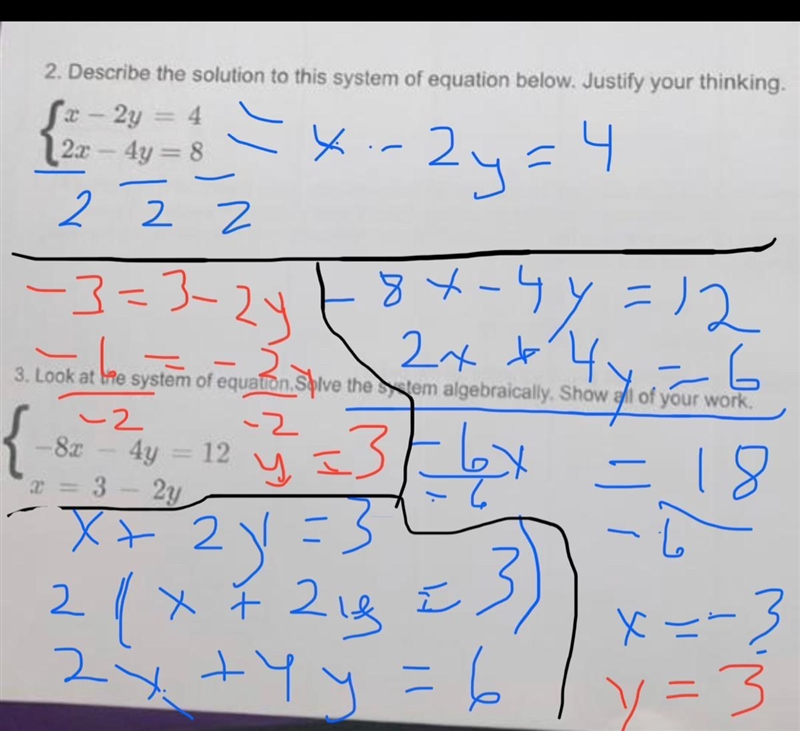 2. Describe the solution to this system of equation below. Justify your thinking.
x − 2y = 4
2x − 4y = 8
2 2 2
= x - 2y = 4
-3 = 3 - 2y
-6 = -2y
-2 -2
y = 3
-8x - 4y = 12
2x + 4y = 6
-6x = 18
-6 -6
x = -3
y = 3
3. Look at the system of equation.Solve the system algebraically. Show all of your work.
−8x − 4y = 12
x = 3 − 2y
x + 2y = 3
2(x + 2y = 3)
2x + 4y = 6